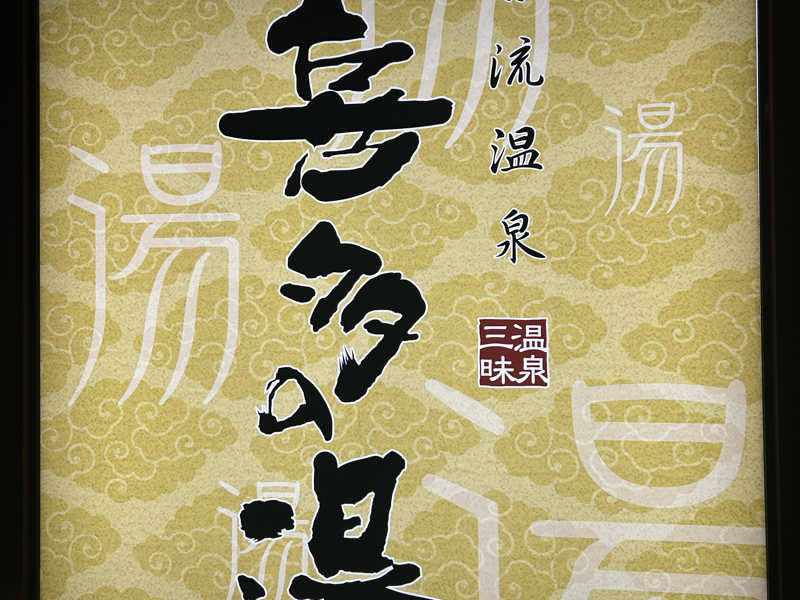 流温泉
喜多の湯
温泉
三昧
湯
湯
湯
湯